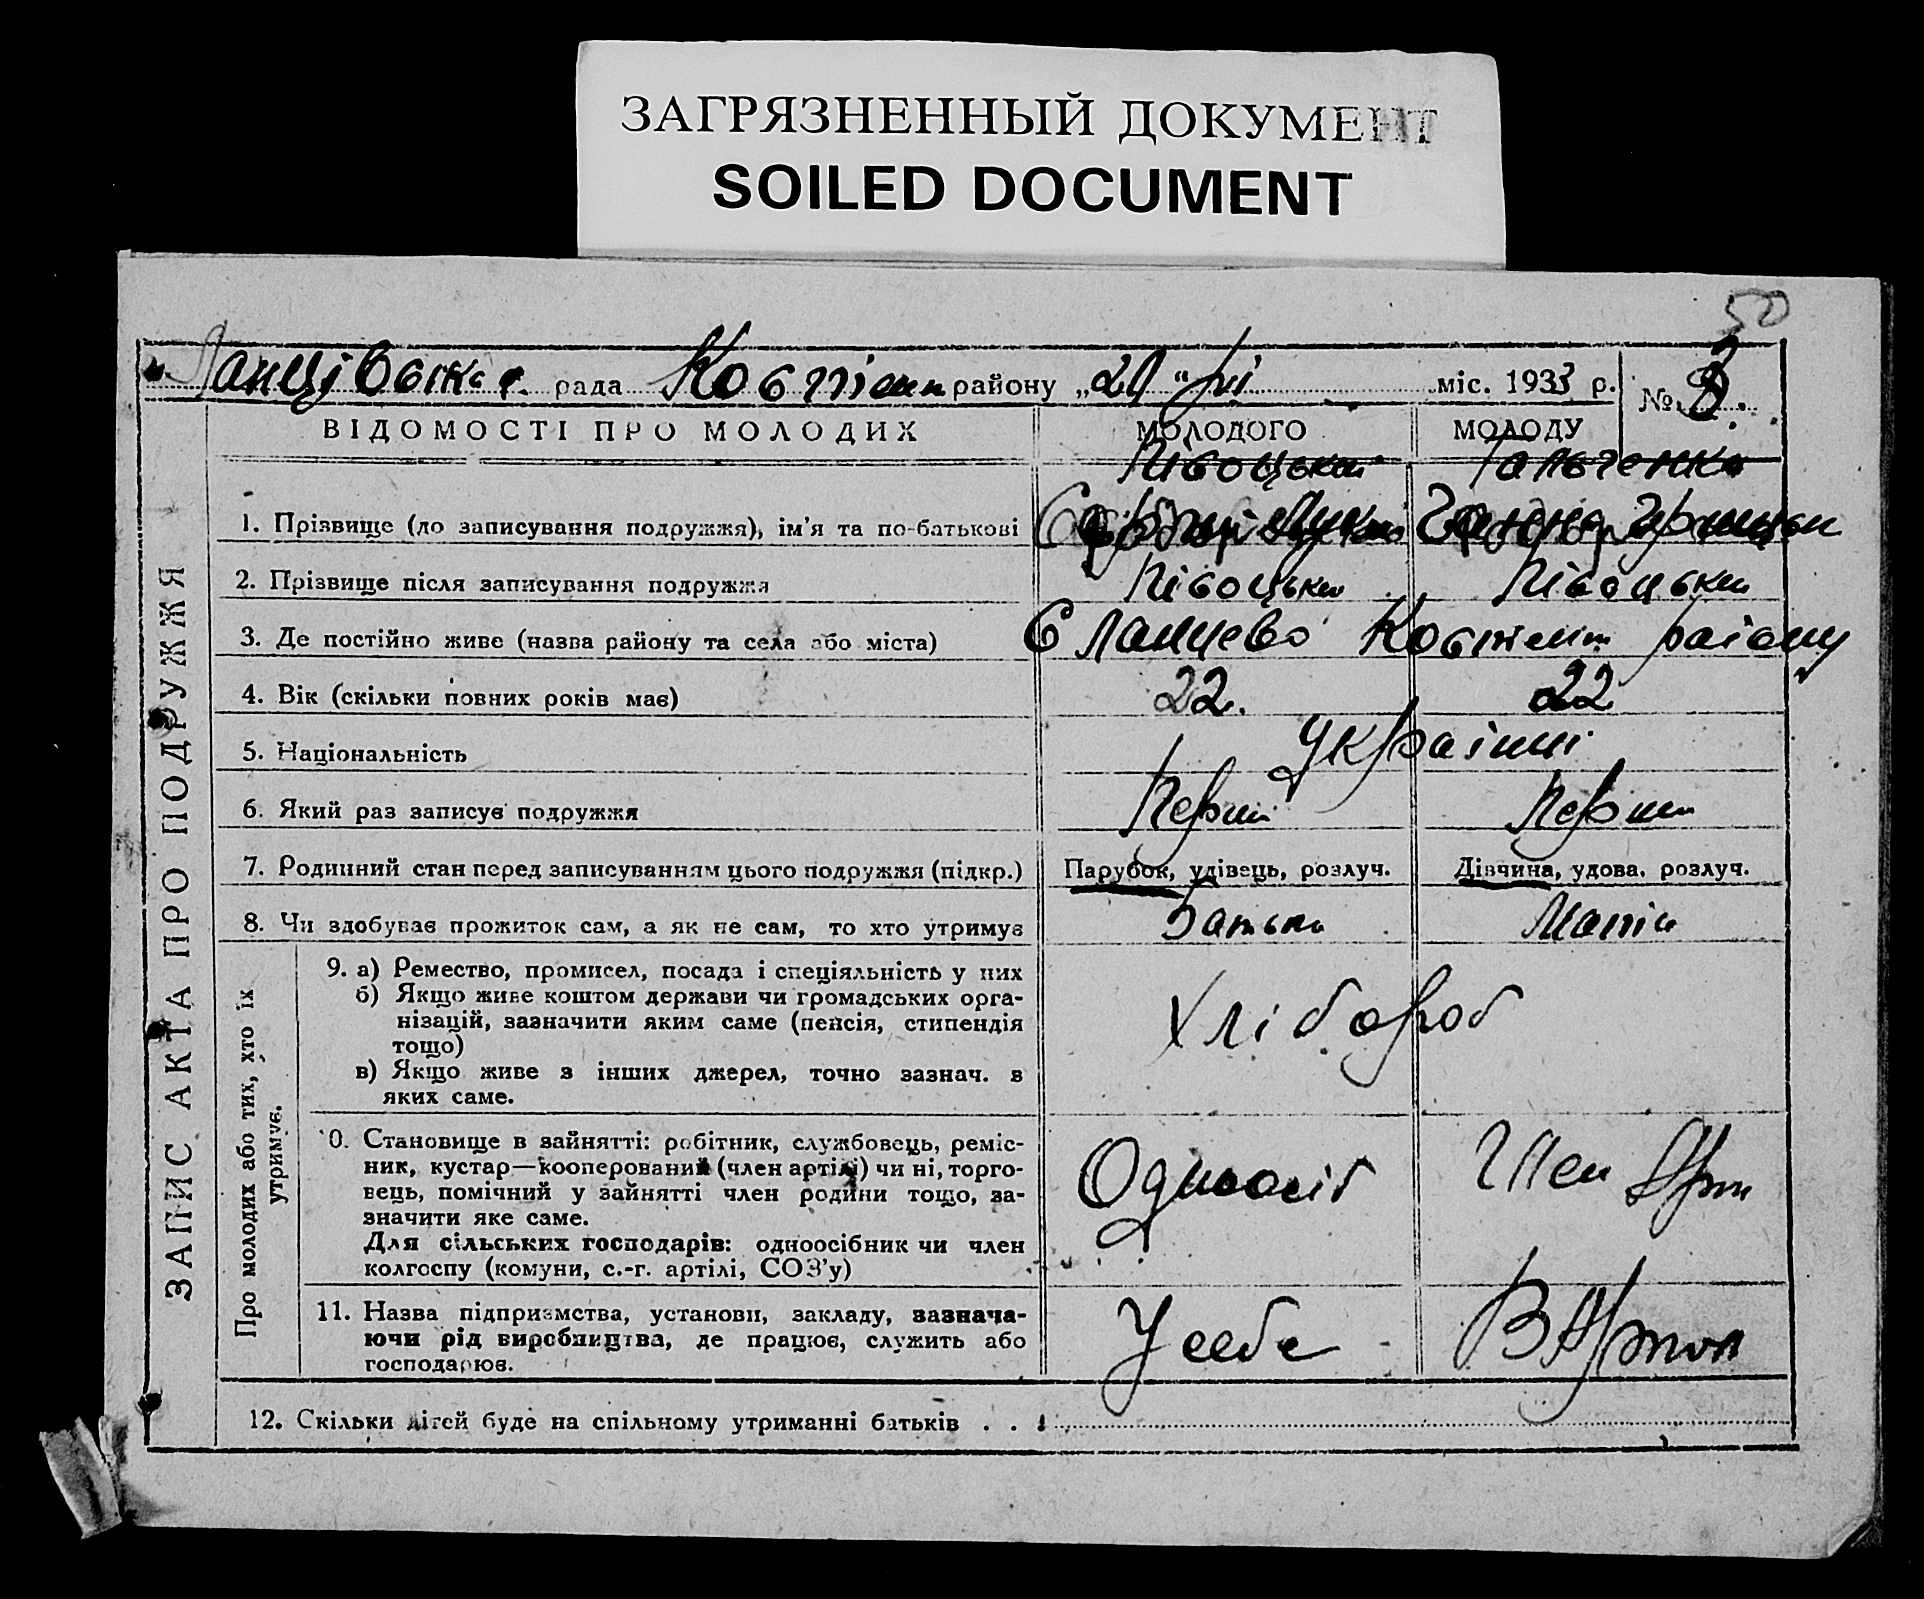 ЗАГРЯЗНЕННЫЙ ДОКУМЕНТ
SOILED DOCUMENT
50
рада району „20“ міс. 1933 р. № 3.
ЗАПИС АКТА ПРО ПОДРУЖЖЯ
ВІДОМОСТІ ПРО МОЛОДИХ МОЛОДОГО МОЛОДУ
Півоцький Гальченко
1. Прізвище (до записування подружжя), ім’я та по-батькові
2. Прізвище після записування подружжя Півоцьки Півоцьки
3. Де постійно живе (назва району та села або міста) С Ланцево району
4. Вік (скільки повних років має) 22. 22
5. Національність Українці
6. Який раз записує подружжя Перший Перший
7. Родинний стан перед записуванням цього подружжя (підкр.) Парубок, удівець, розлуч. Дівчина, удова, розлуч.
8. Чи здобуває прожиток сам, а як не сам, то хто утримує Батьки Матін
Про молодих або тих, хто їх утримує.
9. а) Ремество, промисел, посада і спеціяльність у них
б) Якщо живе коштом держави чи громадських орга-
нізацій, зазначити яким саме (пенсія, стипендія
тощо)
в) Якщо живе з інших джерел, точно зазнач. з
яких саме.
Хлібороб
10. Становище в зайнятті: робітник, службовець, реміс-
ник, кустар—кооперований (член артілі) чи ні, торго-
вець, помічний у зайнятті член родини тощо, за-
значити яке саме.
Для сільських господарів: одноосібник чи член
колгоспу (комуни, с.-г. артілі, СОЗ’у)
Одноосіб Член Арт
11. Назва підприємства, установи, закладу, зазнача-
ючи рід виробництва, де працює, служить або
господарює.
У себе В Артіл
12. Скільки дітей буде на спільному утриманні батьків . . .